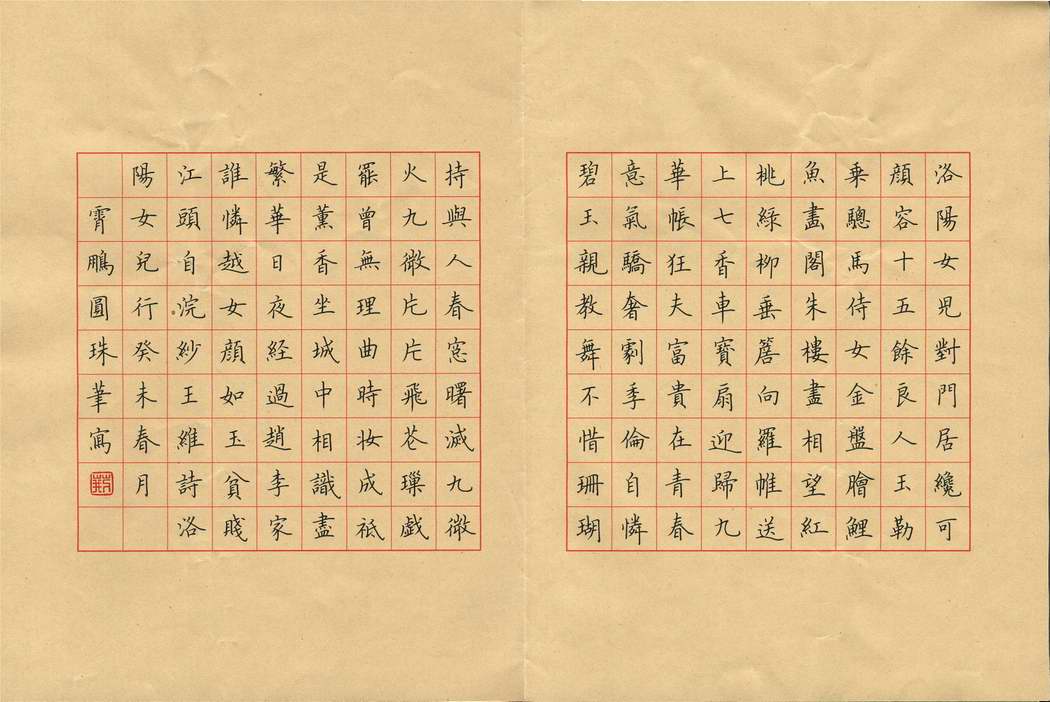 洛陽女兒對門居纔可
顔容十五餘良人玉勒
乗驄馬侍女金盤膾鯉
魚畫閣朱樓盡相望紅
桃綠柳垂簷向羅帷送
上七香車寶扇迎歸九
華帳狂夫富貴在青春
意氣驕奢劇季倫自憐
碧玉親教舞不惜珊瑚
持與人春窓曙滅九微
火九微片片飛花璅戯
罷曾無理曲時妝成祗
是薰香坐城中相識盡
繁華日夜経過趙李家
誰憐越女顔如玉貧賤
江頭自浣紗王維詩洛
陽女兒行癸未春月
霄鵬圓珠筆寫